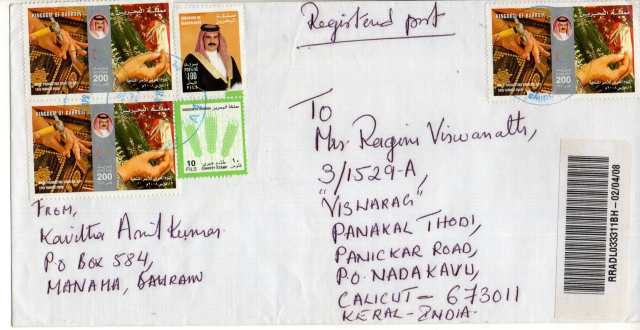 KINGDOM OF BAHRAIN
مملكة البحرين
200
KINGDOM OF BAHRAIN
مملكة البحرين
100
FILS
KINGDOM OF BAHRAIN
مملكة البحرين
200
10
FILS
١٠
Registered post
KINGDOM OF BAHRAIN
مملكة البحرين
200
To
Mrs. Ragini Viswanath,
3/1529-A,
"VISWARAG"
PANAKAL THODI,
PANICKAR ROAD,
P.O. NADAKAVU,
CALICUT – 673011
KERAL-INDIA
FROM,
Kavitha Anil Kumar
PO BOX 584,
MANAMA, BAHRAIN
RRADL033311BH – 02/04/08